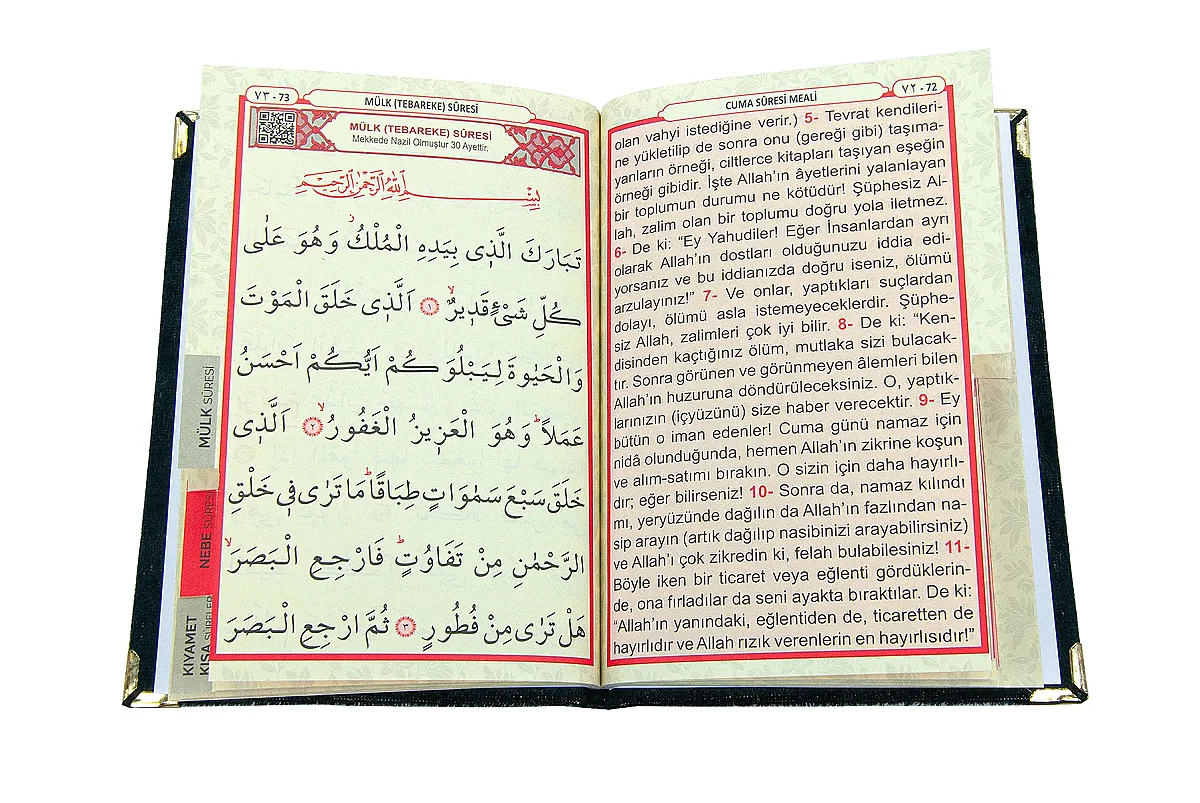 ٧٢ - 72
CUMA SÛRESİ MEALİ
olan vahyi istediğine verir.) 5- Tevrat kendileri-
ne yükletilip de sonra onu (gereği gibi) taşıma-
yanların örneği, ciltlerce kitapları taşıyan eşeğin
örneği gibidir. İşte Allah’ın âyetlerini yalanlayan
bir toplumun durumu ne kötüdür! Şüphesiz Al-
lah, zalim olan bir toplumu doğru yola iletmez.
6- De ki: “Ey Yahudiler! Eğer İnsanlardan ayrı
olarak Allah’ın dostları olduğunuzu iddia edi-
yorsanız ve bu iddianızda doğru iseniz, ölümü
arzulayınız!” 7- Ve onlar, yaptıkları suçlardan
dolayı, ölümü asla istemeyeceklerdir. Şüphe-
siz Allah, zalimleri çok iyi bilir. 8- De ki: “Ken-
disinden kaçtığınız ölüm, mutlaka sizi bulacak-
tır. Sonra görünen ve görünmeyen âlemleri bilen
Allah’ın huzuruna döndürüleceksiniz. O, yaptık-
larınızın (içyüzünü) size haber verecektir. 9- Ey
bütün o iman edenler! Cuma günü namaz için
nidâ olunduğunda, hemen Allah’ın zikrine koşun
ve alım-satımı bırakın. O sizin için daha hayırlı-
dır; eğer bilirseniz! 10- Sonra da, namaz kılındı
mı, yeryüzünde dağılın da Allah’ın fazlından na-
sip arayın (artık dağılıp nasibinizi arayabilirsiniz)
ve Allah’ı çok zikredin ki, felah bulabilesiniz! 11-
Böyle iken bir ticaret veya eğlenti gördüklerin-
de, ona fırladılar da seni ayakta bıraktılar. De ki:
“Allah’ın yanındaki, eğlentiden de, ticaretten de
hayırlıdır ve Allah rızık verenlerin en hayırlısıdır!”
٧٣ - 73
MÜLK (TEBAREKE) SÛRESİ
MÜLK (TEBAREKE) SÛRESİ
Mekkede Nazil Olmuştur 30 Ayettir.
بِسْمِ اللّٰهِ الرَّحْمٰنِ الرَّحِيمِ
تَبَارَكَ الَّذٖى بِيَدِهِ الْمُلْكُؗ وَهُوَ عَلٰى
كُلِّ شَىْءٍ قَدٖيرٌۙ ﴿١﴾ اَلَّذٖى خَلَقَ الْمَوْتَ
وَالْحَيٰوةَ لِيَبْلُوَكُمْ اَيُّكُمْ اَحْسَنُ
عَمَلًاؕ وَهُوَ الْعَزٖيزُ الْغَفُورُۙ ﴿٢﴾ اَلَّذٖى
خَلَقَ سَبْعَ سَمٰوَاتٍ طِبَاقًاؕ مَا تَرٰى فٖى خَلْقِ
الرَّحْمٰنِ مِنْ تَفَاوُتٍؕ فَارْجِعِ الْبَصَرَۙ
هَلْ تَرٰى مِنْ فُطُورٍ ﴿٣﴾ ثُمَّ ارْجِعِ الْبَصَرَ
MÜLK SÛRESİ
NEBE SÛRESİ
KIYAMET
KISA SÛRELER